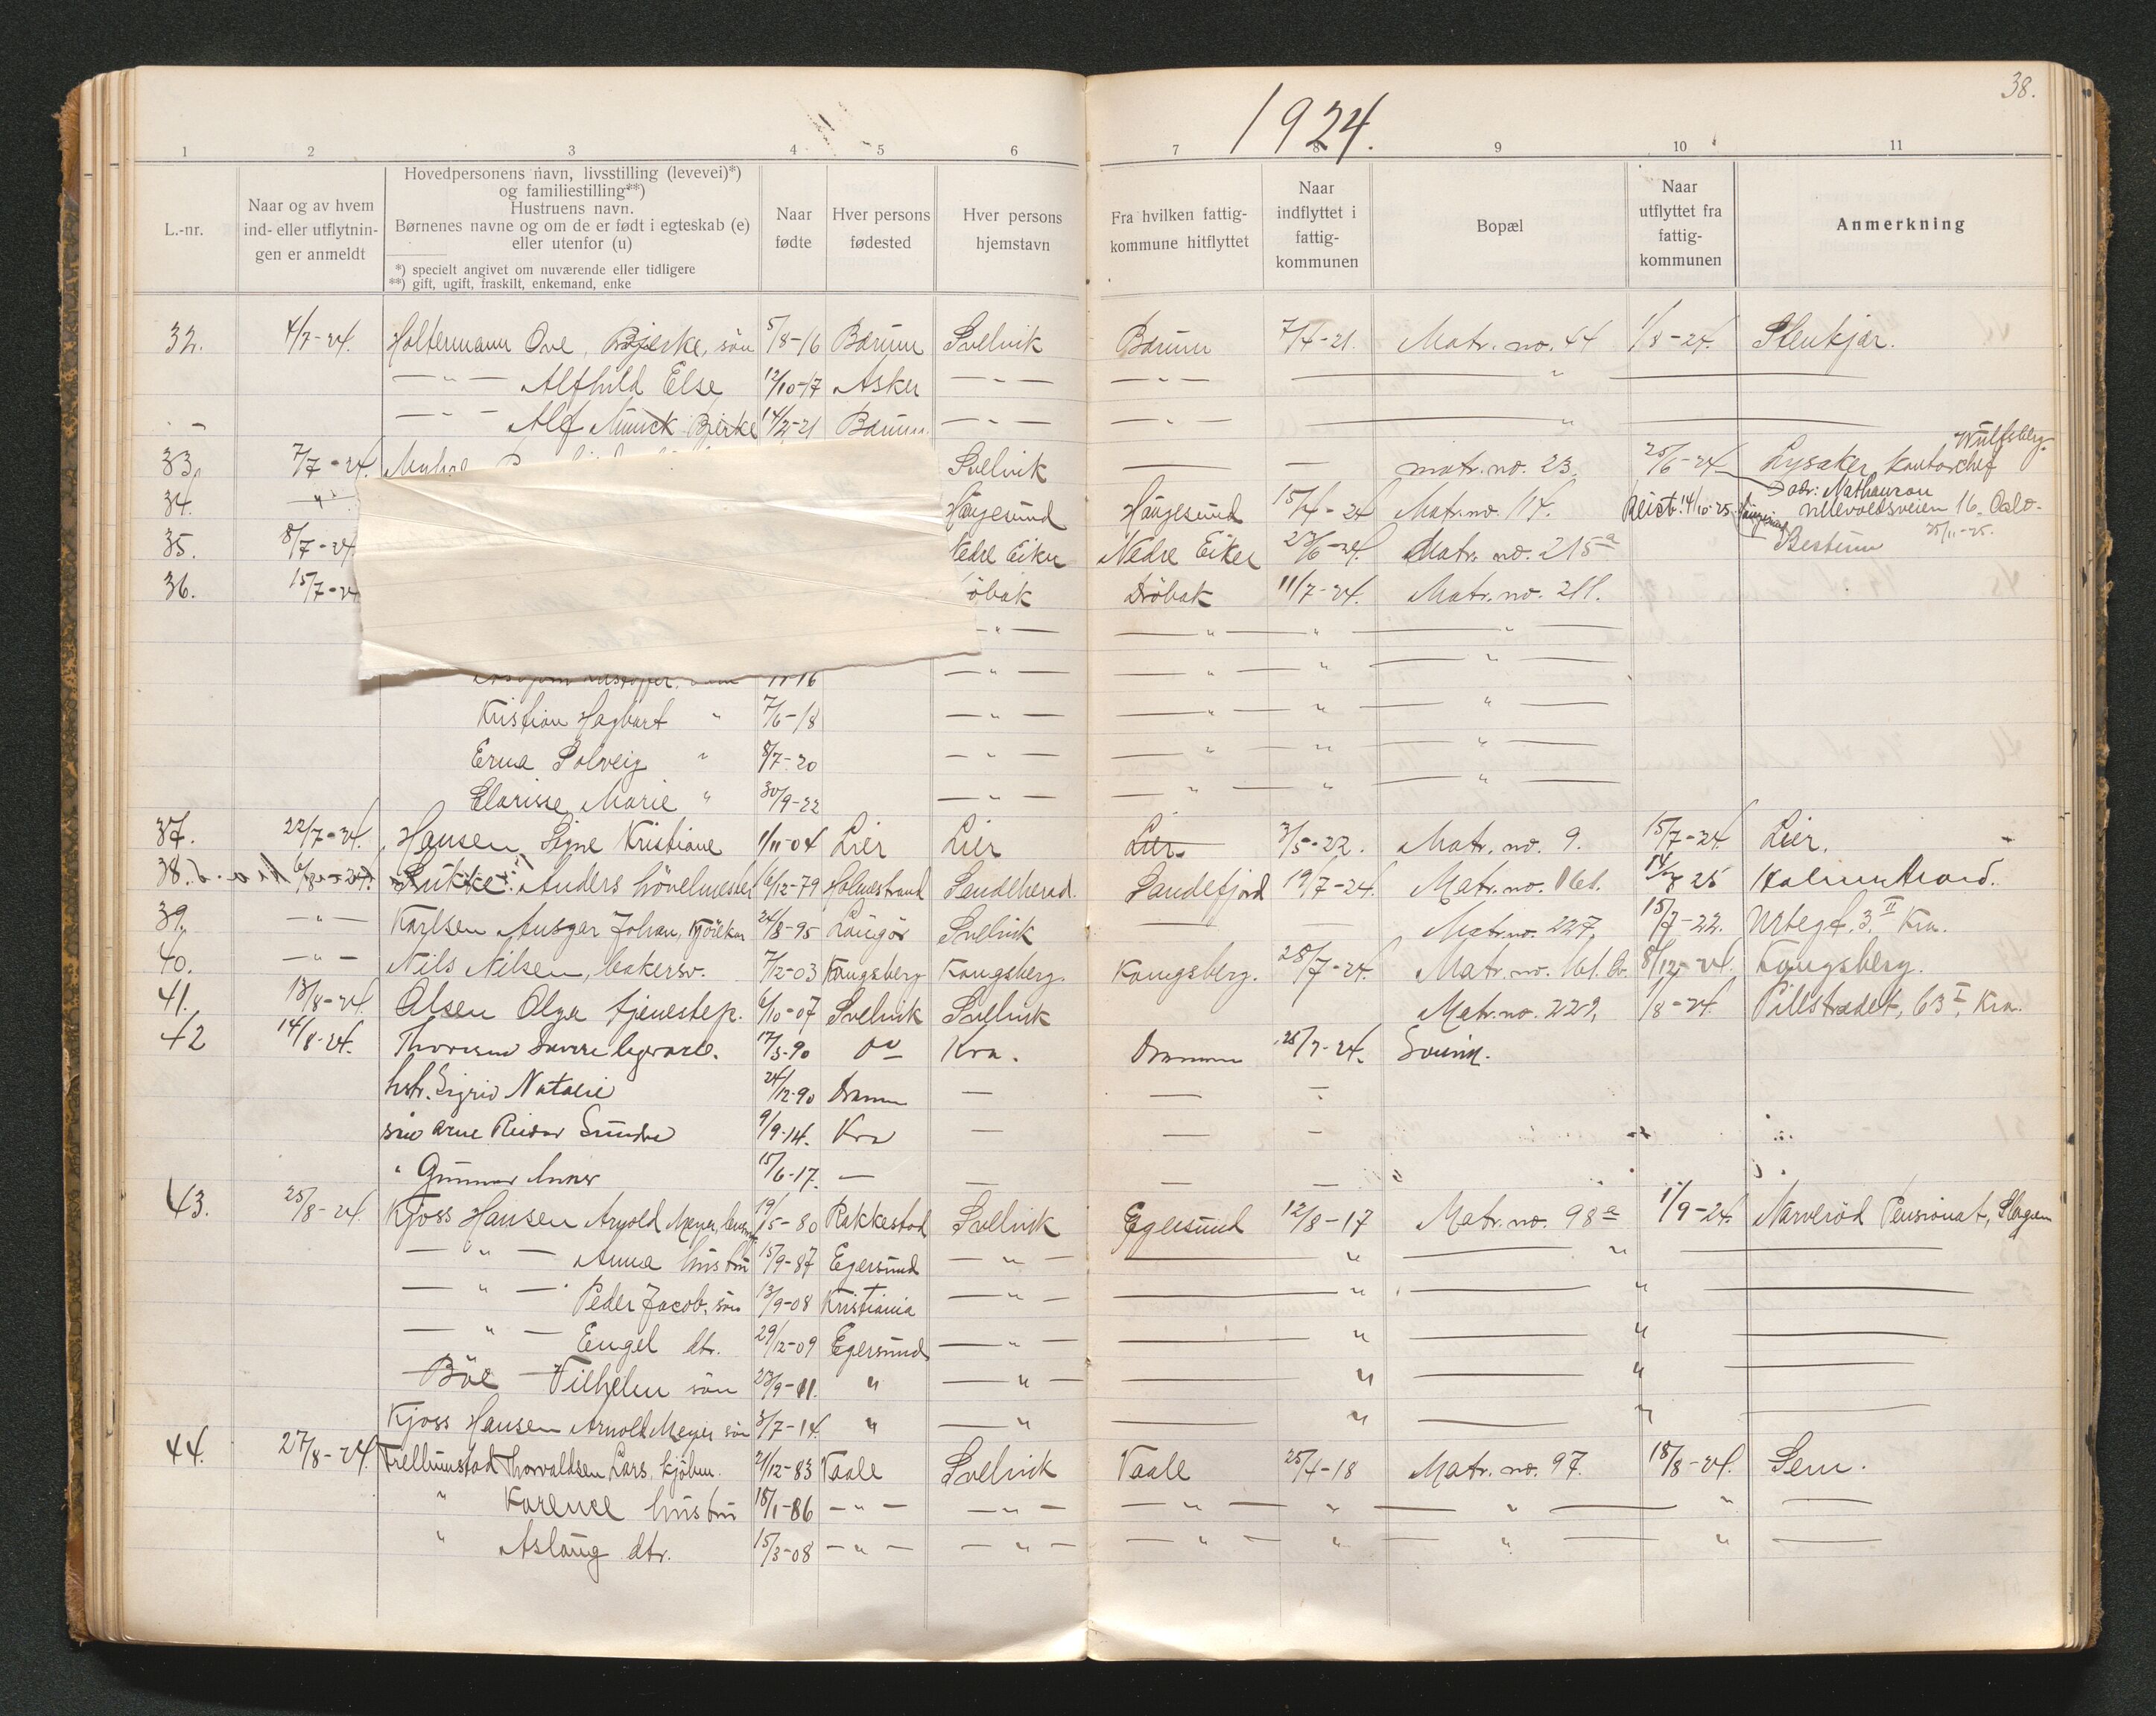 38.
1924.
1 2 3 4 5 6 7 8 9 10 11
L.-nr.
Naar og av hvem
ind- eller utflytnin-
gen er anmeldt
Hovedpersonens navn, livsstilling (levevei)*)
og familiestilling**)
Hustruens navn.
Børnenes navne og om de er født i egteskab (e)
eller utenfor (u)
*) specielt angivet om nuværende eller tidligere
**) gift, ugift, fraskilt, enkemand, enke
Naar
fødte
Hver persons
fødested
Hver persons
hjemstavn
Fra hvilken fattig-
kommune hitflyttet
Naar
indflyttet i
fattig-
kommunen
Bopæl
Naar
utflyttet fra
fattig-
kommunen
Anmerkning
32. 4/7-24. Holtermann Ove, Bjerke, sön 5/8-16 Bærum Svelvik Bærum 7/4-21. Matr. no. 44 1/8-24. Stenkjær.
— " — Alfhild Else 12/10-17 Asker — " — — " — "
— " — Alf Munck Bjerke 14/2-21 Bærum. — " — — " "
33. 7/7-24. Svelvik — — matr. no. 23. 25/6-24 Lysaker, kontorchef Wulfsberg.
34. — " — Haugesund Haugesund 15/4-24 Matr. no. 114. Reist. 14/10-25 Haugesund adr: Nathanson Ullevoldsveien 16. Oslo. 25/11-25.
35. 8/7-24. Nedre Eiker Nedre Eiker 23/6-24. Matr. no. 215a Bestum
36. 15/7-24 öbak Dröbak 11/7-24. Matr. no. 211.
— " — — " — " "
11-16 — " — — " — " "
Kristian Hagbart " 7/6-18 — " — — " — " "
Erna Solveig " 8/7-20 — " — — " — " "
Clarisse Marie " 30/9-22 — " — — " — " "
37. 22/7-24. Hansen Signe Kristiane 1/11-04 Lier Lier Lier. 3/5-22. Matr. no. 9. 15/7-24 Lier.
38. 6/8-24. Lukke: Anders hövelmester 6/12-79 Holmestrand Sandeherad. Sandefjord 19/7-24. Matr. no. 25 Holmestrand.
39. — " — Karlsen Ansgar Johan, 24/8-95 Langör Svelvik — — Matr. no. 227, 15/7-22. Urtegt. 3. II Kra.
40. — " — Nils Nilsen, bakersv. 7/12-03 Kongsberg Kongsberg. Kongsberg. 28/7-24. Matr. no. 8/12-24. Kongsberg.
41. 13/8-24. Olsen Olga tjenestep. 6/10-07 Svelvik Svelvik Matr. no. 229, 18-24. Pillstrædet, 63 I, Kra.
42 14/8-24. Thoresen Sverre 17/3-90 Do Kra. Drammen 25/7-24.
hstr. Sigrid Natalie 24/12-90 Dramm — — —
sön Arne Reidar 9/9-14. Kra — — —
" Gunnar 15/6-17. — — — —
43. 25/8-24. Kjoss Hansen Arnold Meyer, 19/5-80 Rakkestad Svelvik Egersund 12/8-17 Matr. no. 98a 1/9-24. Narveröd Pensionat, Slagen
— " — Anna hustru 15/9-87 Egersund — " — — " "
— " — Peder Jacob, sön 13/9-08 Kristiania — " — — " "
— " — Engel dtr. 29/12-09 Egersund — " — — " "
Böe — Vilhelm sön 23/9-11. " — " — " "
Kjoss Hansen Arnold Meyer sön 3/7-14. " — " — " "
44. 27/8-24. Trellumstad Thorvaldsen Lars, kjöbm. 21/12-83 Vaale Svelvik Vaale 25/4-18 Matr. no. 97. 15/8-24. Sem.
" Karense hustru 18/1-86 — " — — " — — " — " " " —
" Aslaug dtr. 15/3-08 — " — — " — — " — " " " —